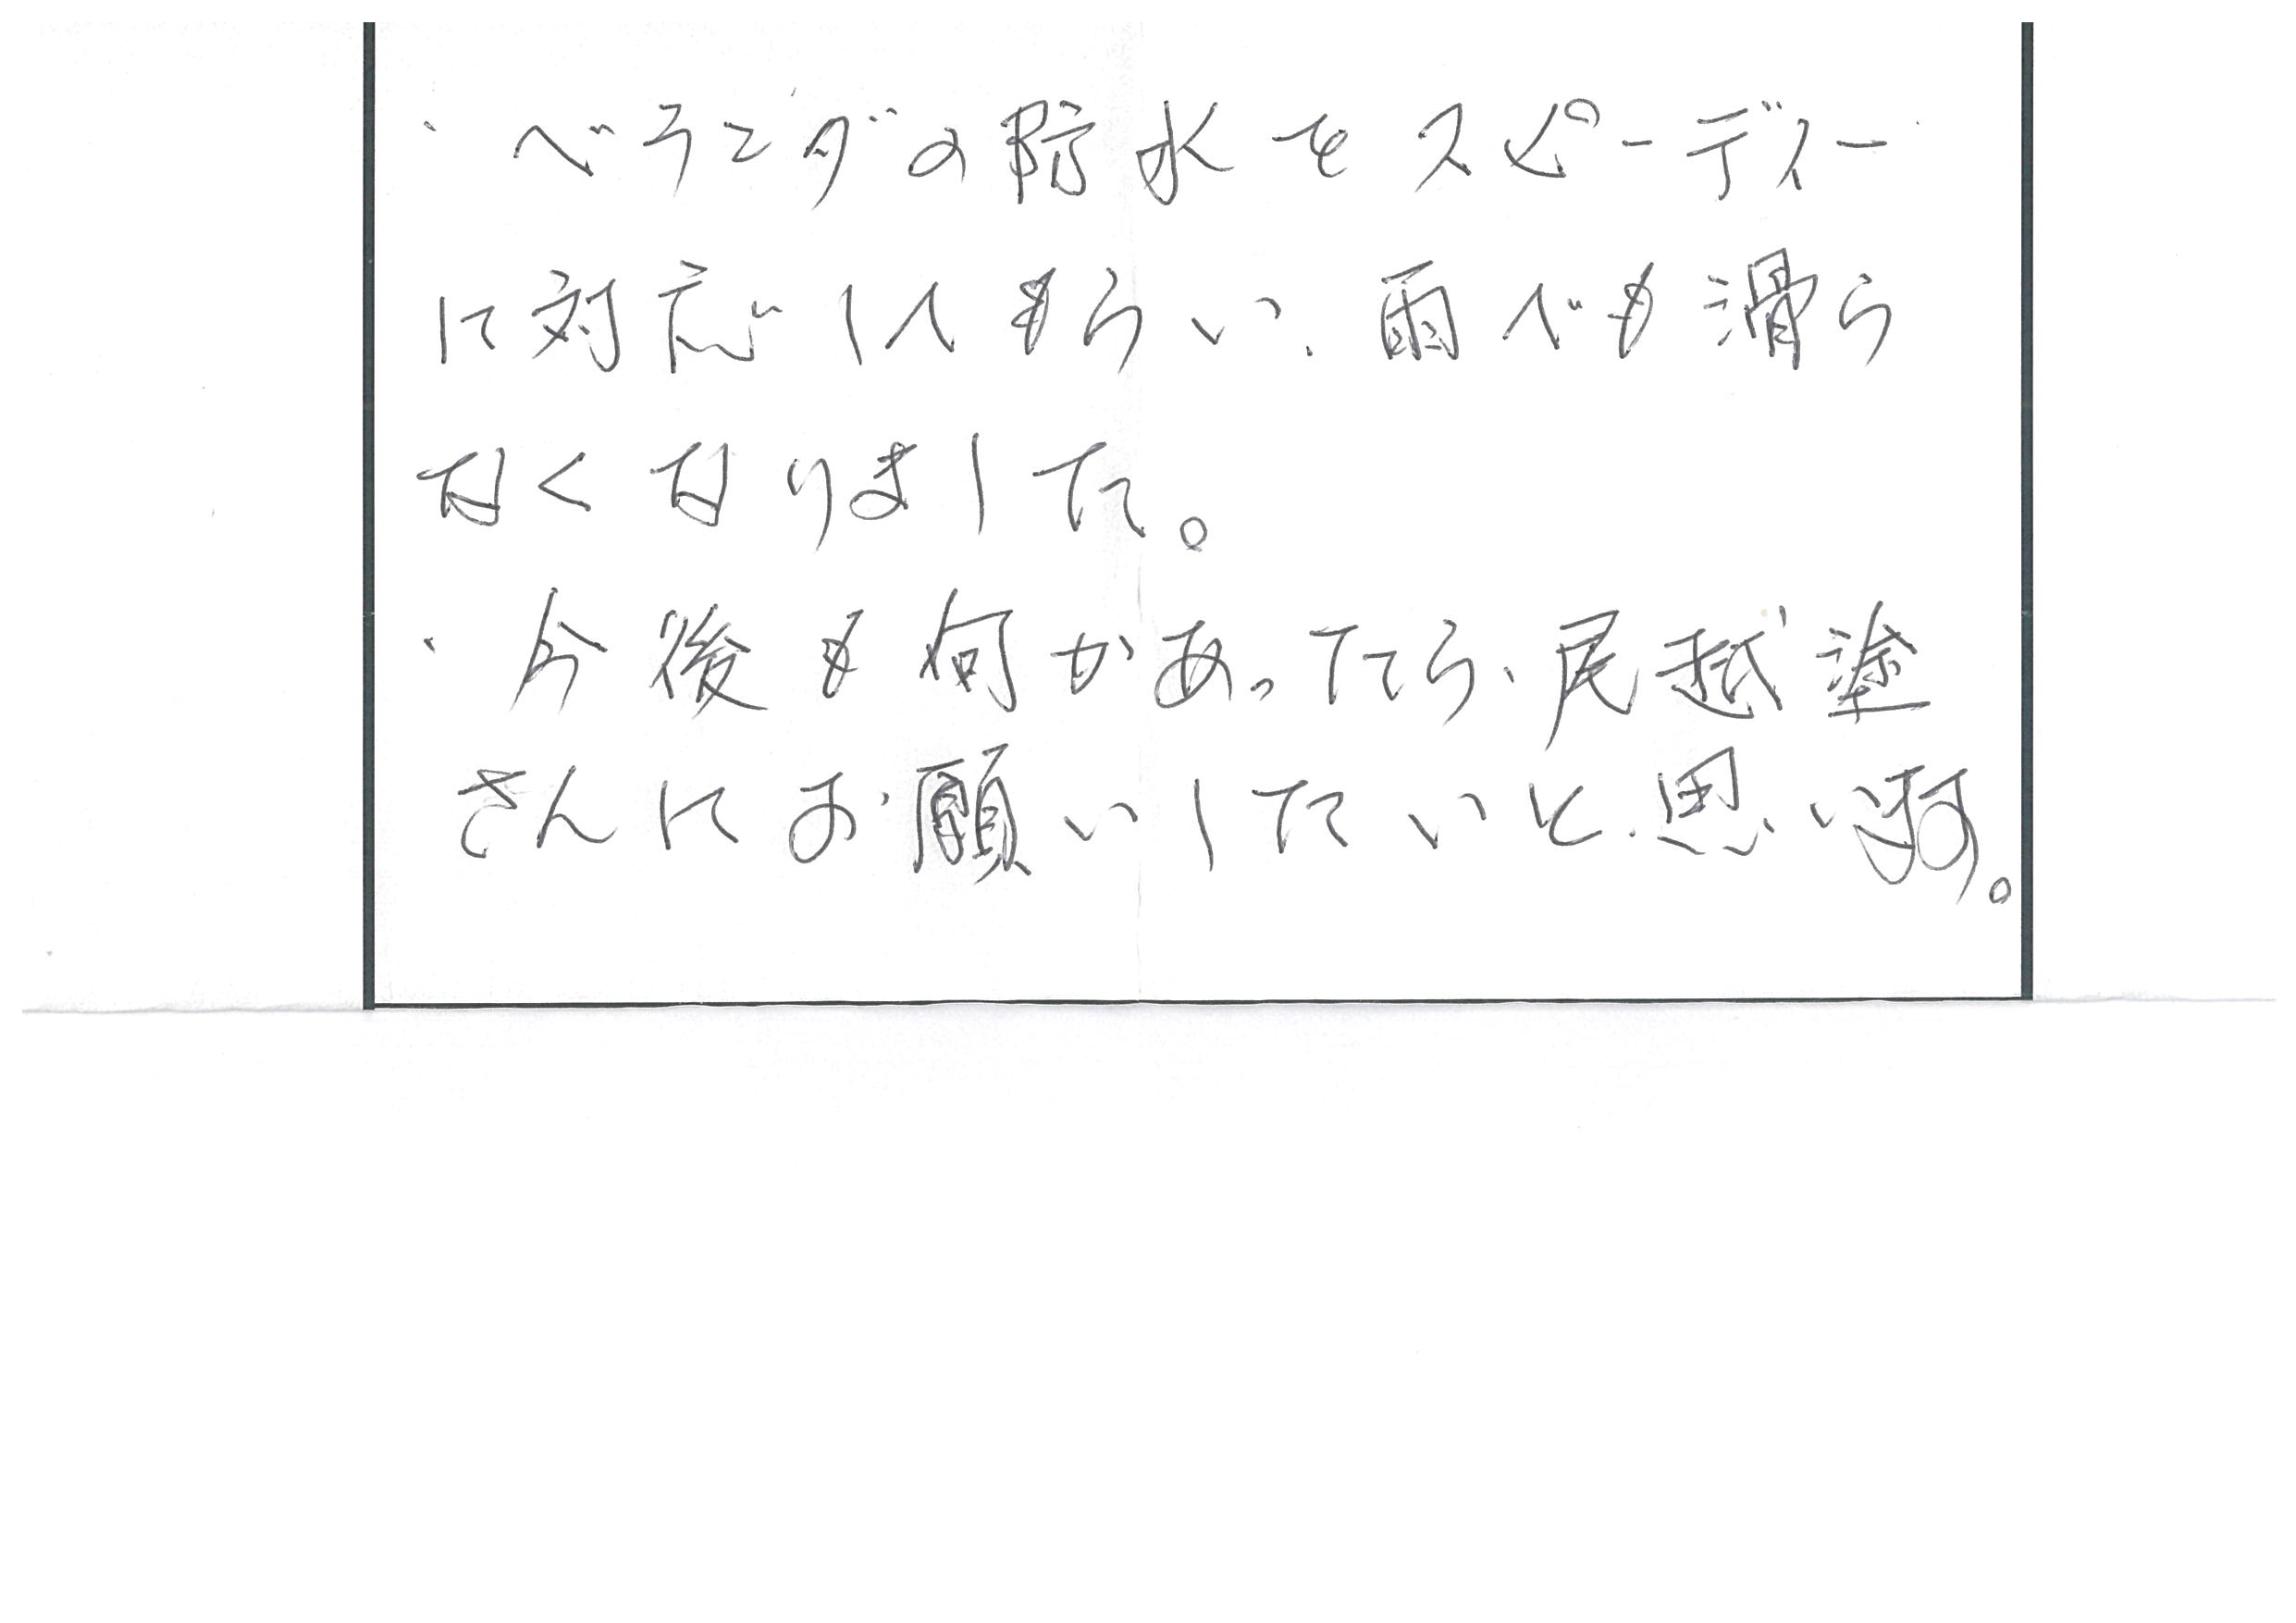 ・ベランダの防水をスピーディー
に対応してもらい、雨でも滑ら
なくなりました。
・今後も何かあったら、尾越塗
さんにお願いしたいと思います。